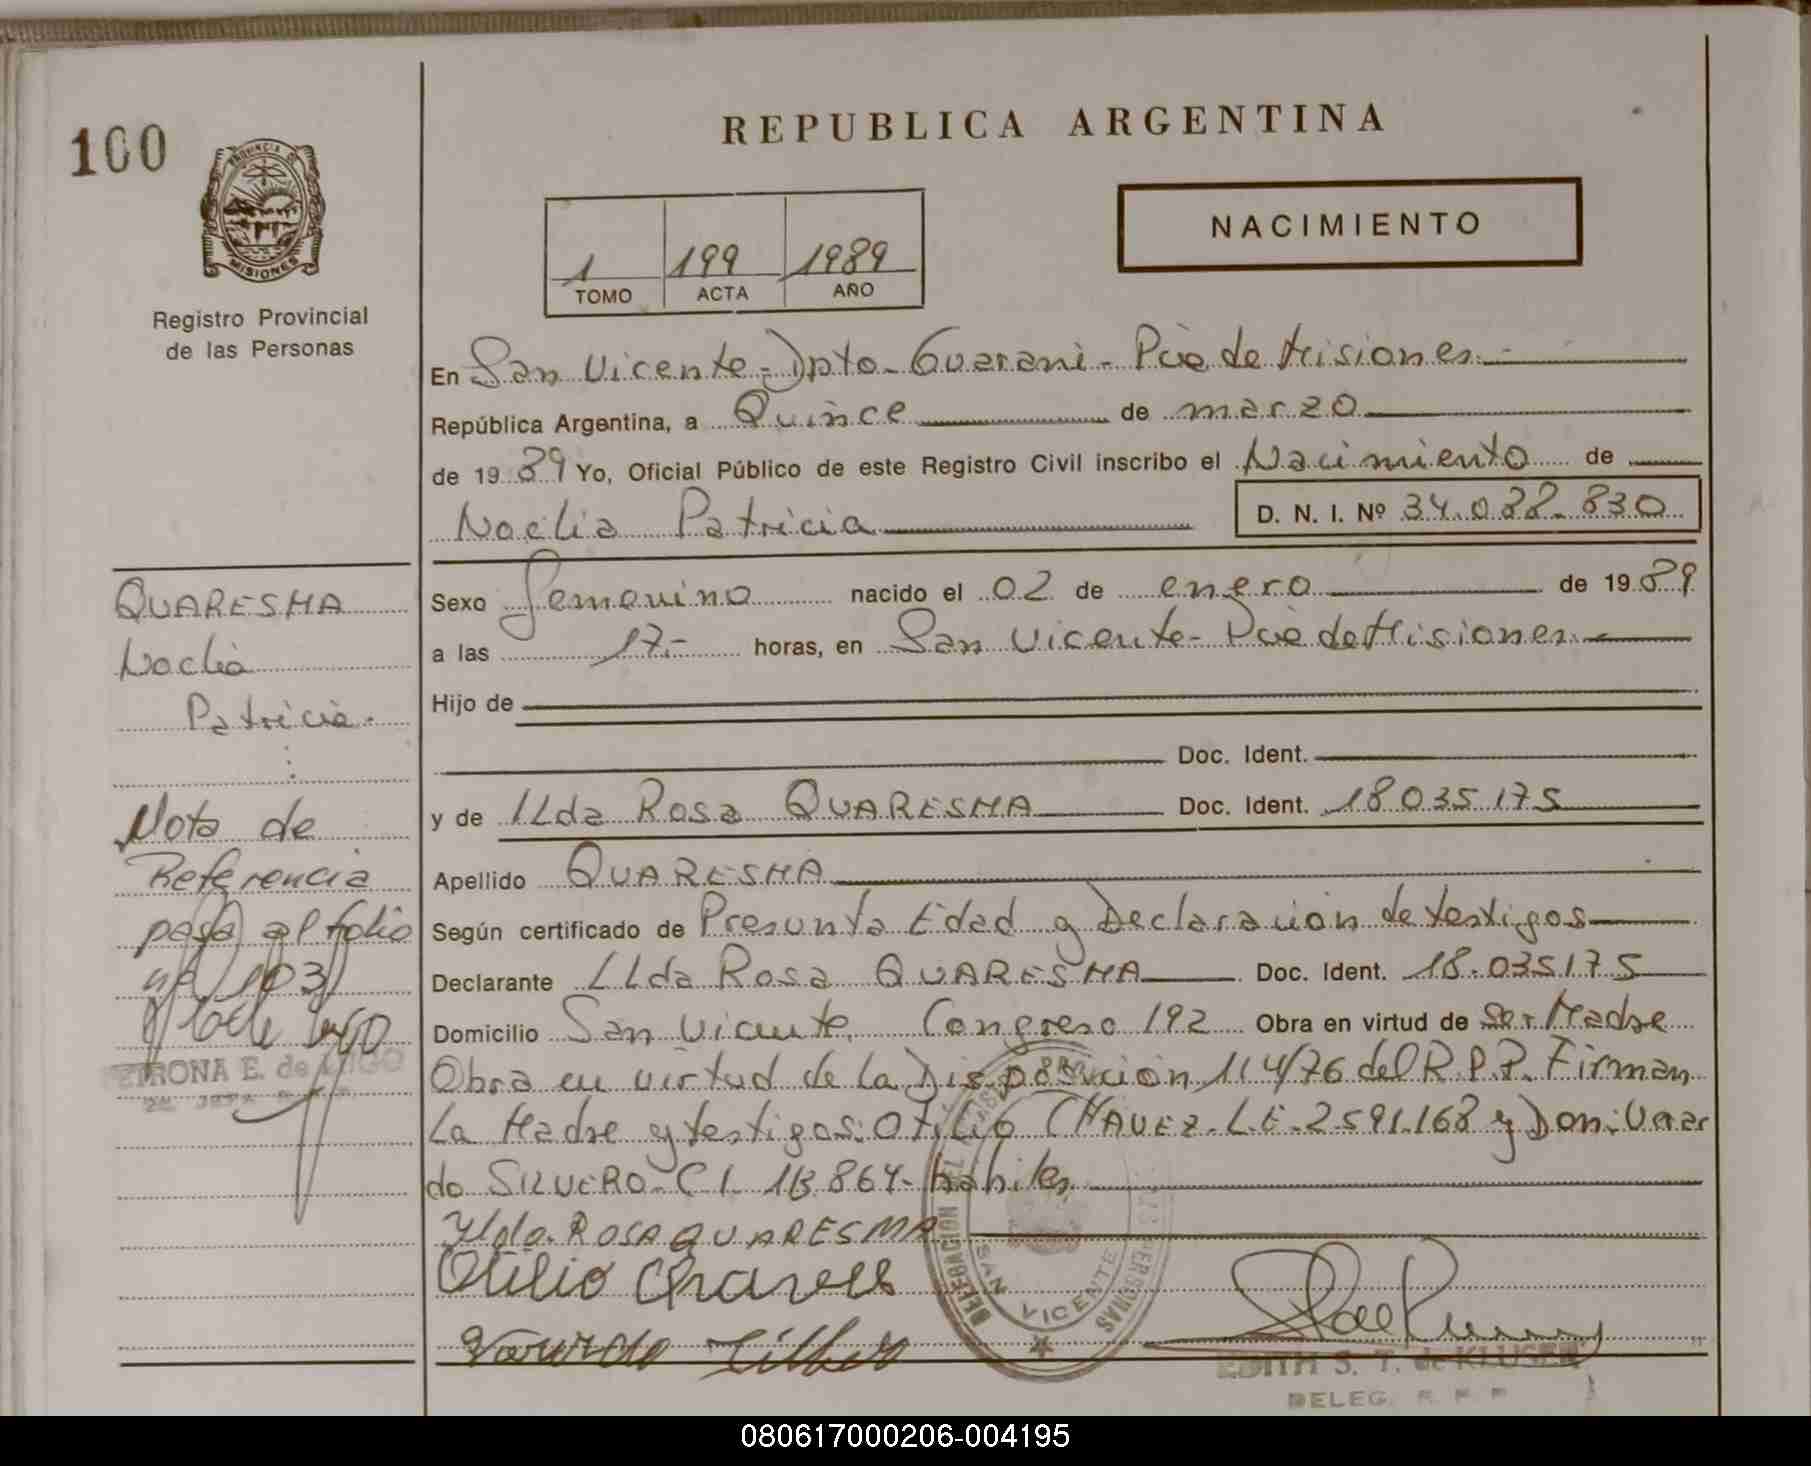 100
PROVINCIA DE
MISIONES
Registro Provincial
de las Personas
REPUBLICA ARGENTINA
1 199 1989
TOMO ACTA AÑO
NACIMIENTO
En San Vicente - Dpto - Guarani - Pcia de Misiones. -
República Argentina, a Quince de marzo
de 1989 Yo, Oficial Público de este Registro Civil inscribo el Nacimiento de
Noelia Patricia D. N. I. Nº 34.088.830
Sexo femenino nacido el 02 de enero de 1989
a las 17.- horas, en San Vicente - Pcia de Misiones. -
Hijo de
Doc. Ident.
y de Ilda Rosa QUARESMA Doc. Ident. 18035175
Apellido QUARESMA
Según certificado de Presunta Edad y Declaración de testigos
Declarante Ilda Rosa QUARESMA Doc. Ident. 18.035175
Domicilio San Vicente, Congreso 192 Obra en virtud de Ser Madre
Obra en virtud de la Disposición 114/76 del R.P.P. Firman
La Madre y testigos: Otilio CHAVEZ - L.E. 2.591.168 y Don:
do SILVERO - C I. 113.864 - habiles
Ylda. ROSA QUARESMA
Otilio
QUARESMA
Noelia
Patricia -
Nota de
Referencia
pasa al folio
nº 103
PETRONA E. de LUGO
DELEGACION DEL
PERSONAS
SAN VICENTE
EDITH S. T. de KLUSENER
DELEG. R. P. P.
080617000206-004195